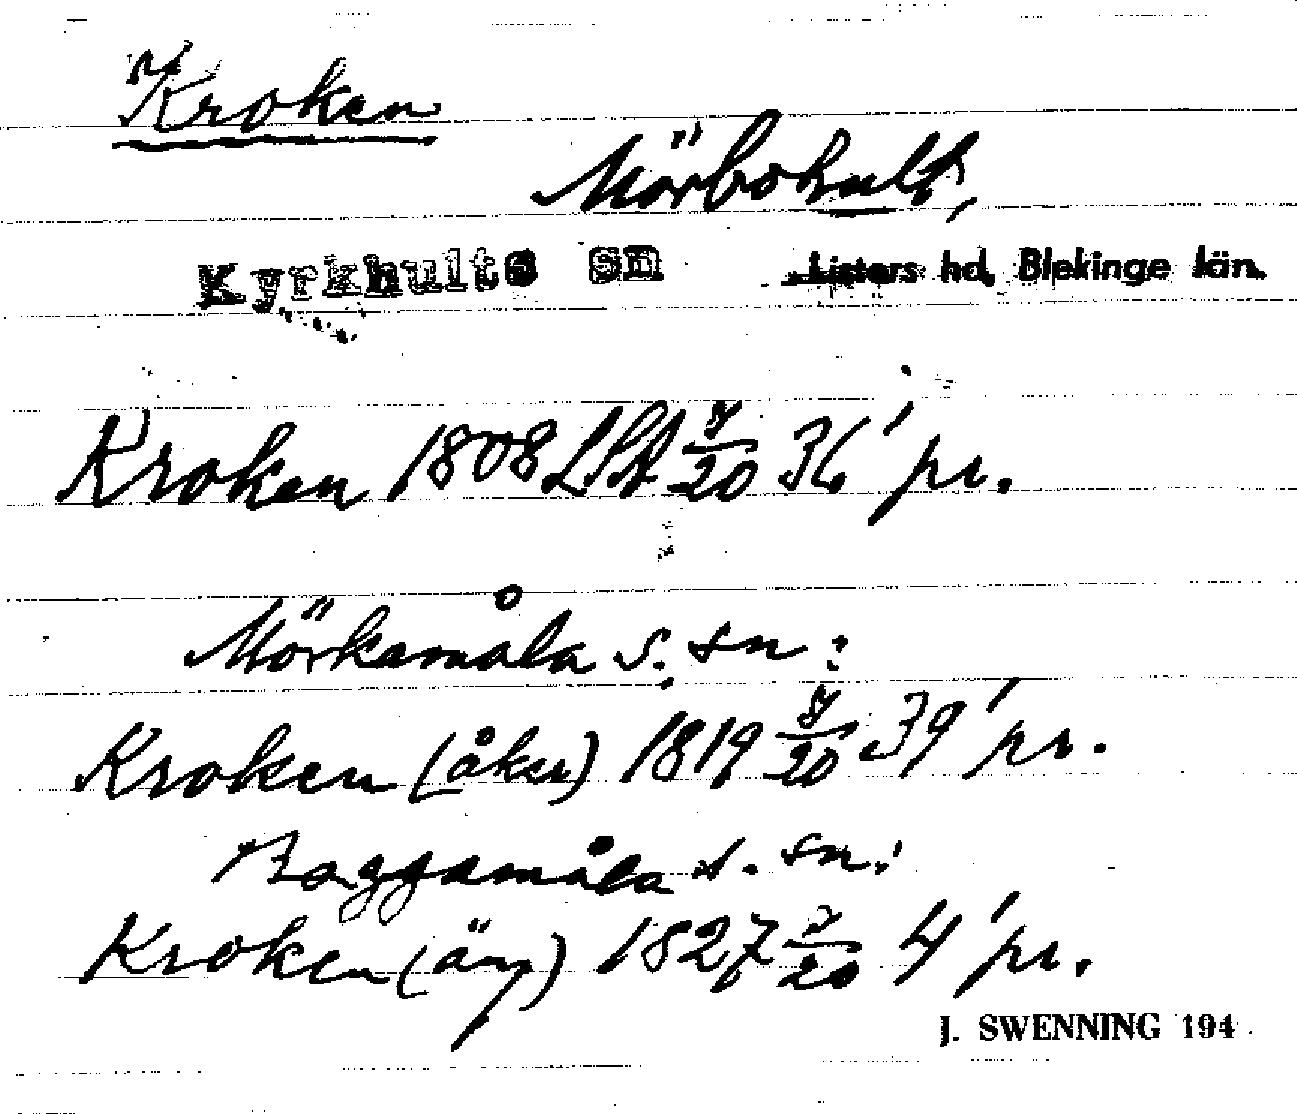 Kroken
Mörbohult,
Kyrkhults sn Listers hd, Blekinge län.
Kroken 1808 LSA 7/20 36' pr.
Mörkamåla s. sn:
Kroken (åker) 1819 7/20 39' pr.
Baggamåla s. sn:
Kroken (äng) 1827 7/20 4' pr.
J. SWENNING 194